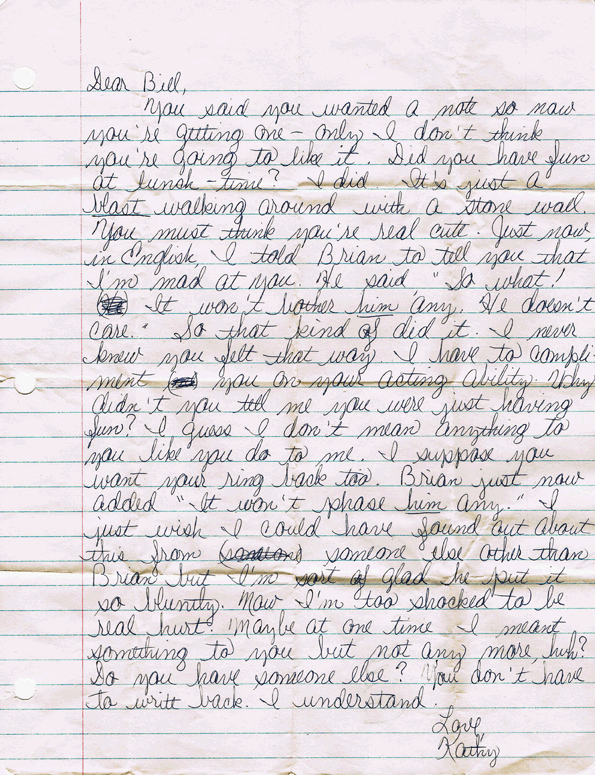 Dear Bill,
You said you wanted a note so now
you're getting one - only I don't think
you're going to like it. Did you have fun
at lunch-time? I did. It's just a
blast walking around with a stone wall.
You must think you're real cute. Just now,
in English, I told Brian to tell you that
I'm mad at you. He said "So what!
It won't bother him any. He doesn't
care." So that kind of did it. I never
knew you felt that way. I have to compli-
ment you on your acting ability. Why
didn't you tell me you were just having
fun? I guess I don't mean anything to
you like you do to me. I suppose you
want your ring back too. Brian just now
added "It won't phase him any." I
just wish I could have found out about
this from someone else other than
Brian but I'm sort of glad he put it
so bluntly. Now I'm too shocked to be
real hurt. Maybe at one time I meant
something to you but not any more, huh?
Do you have someone else? You don't have
to writt back. I understand.
Love,
Kathy